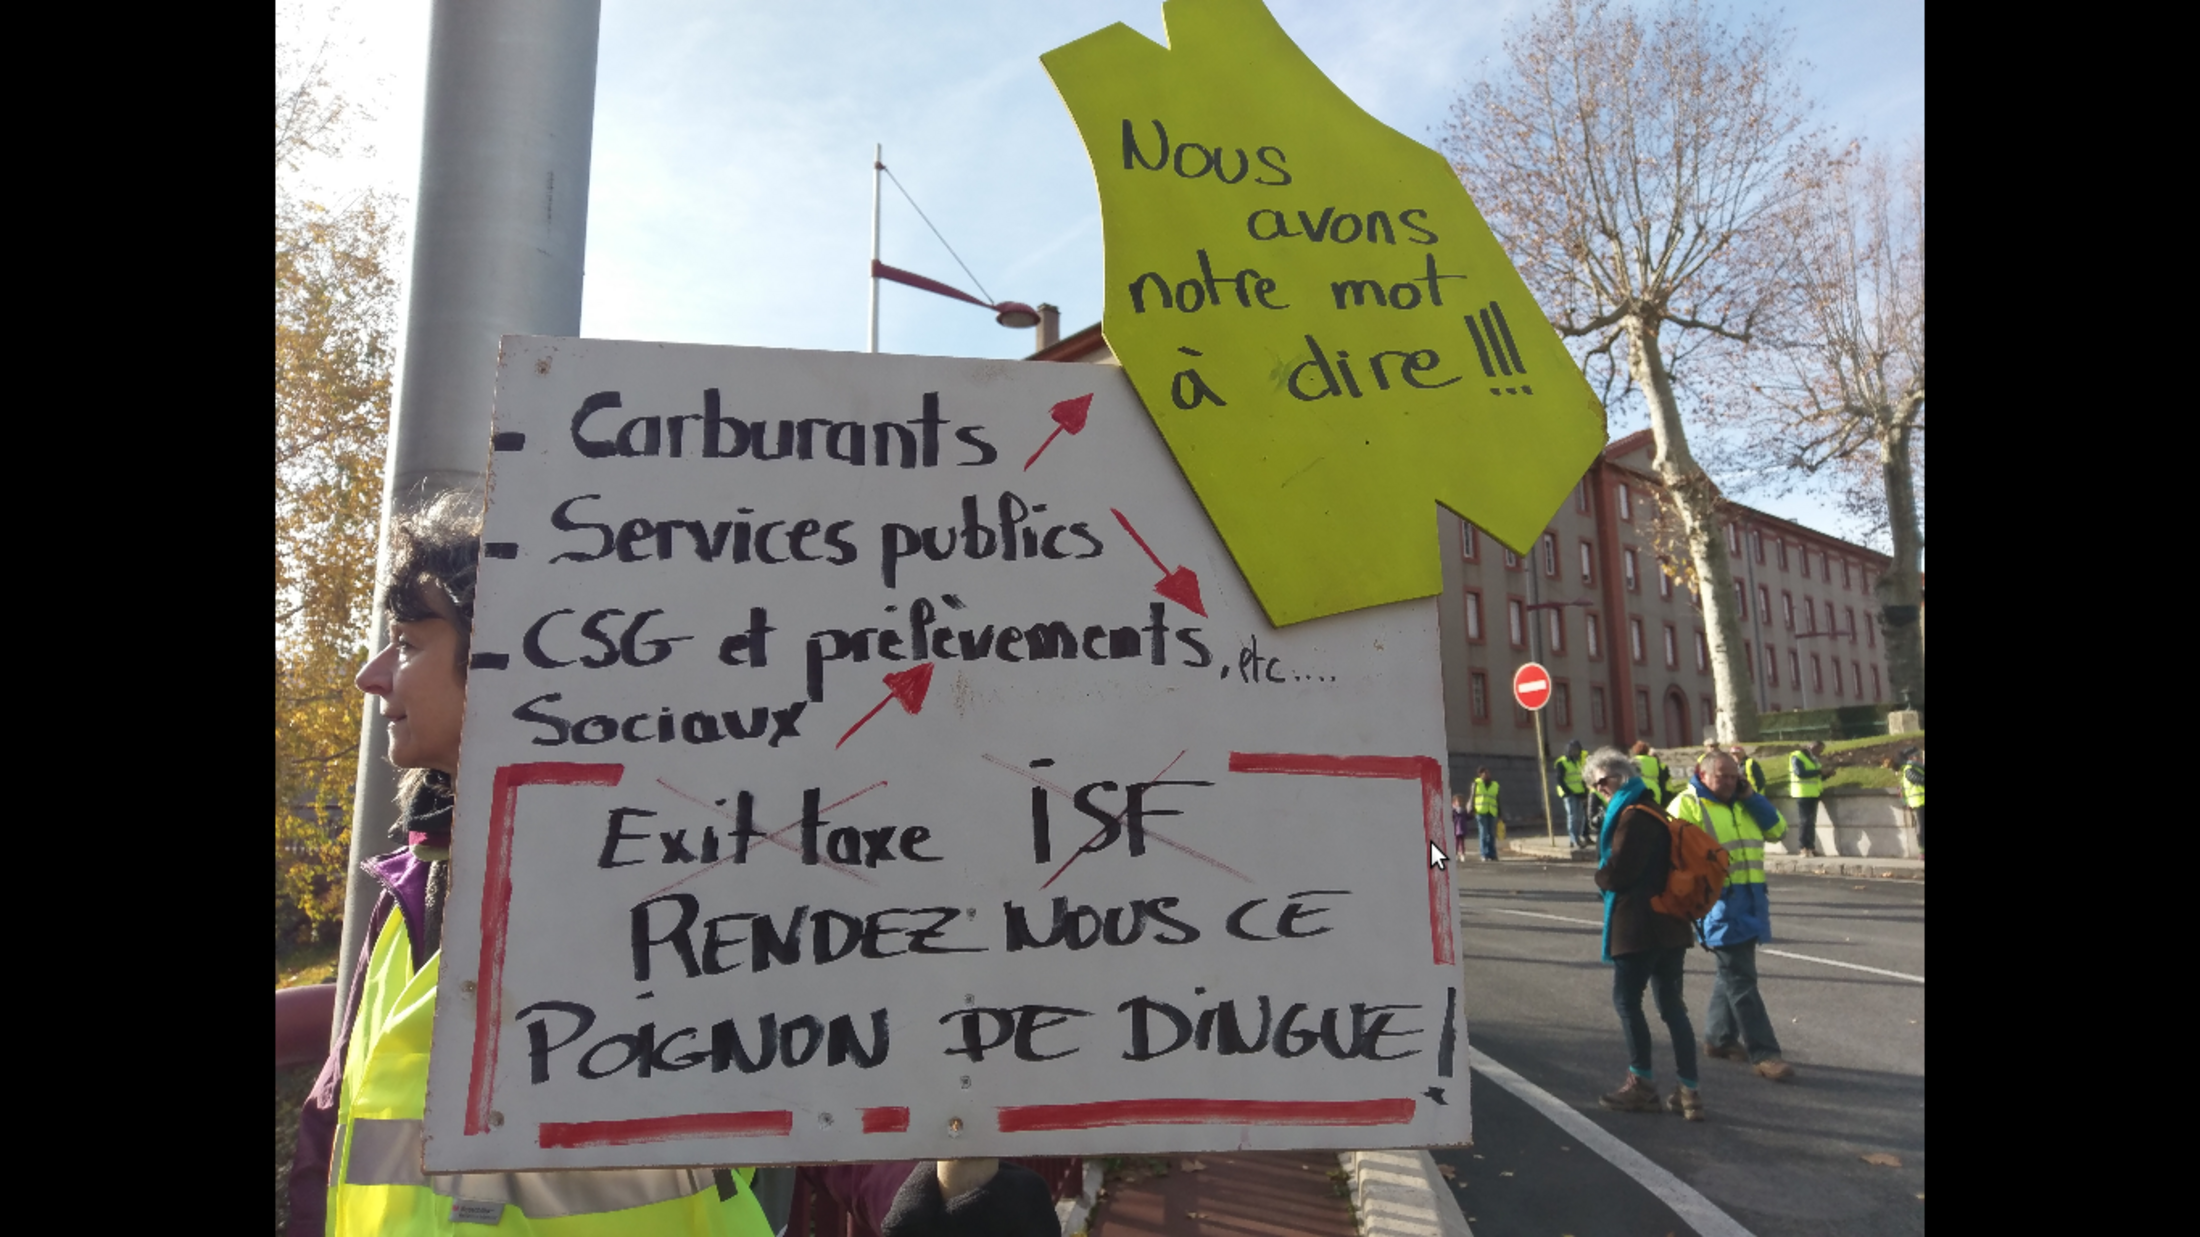 Nous
avons
notre mot
à dire !!!
- Carburants
- Services publics
- CSG et prélèvements, etc....
Sociaux
Exit taxe ISF
RENDEZ NOUS CE
POIGNON DE DINGUE!